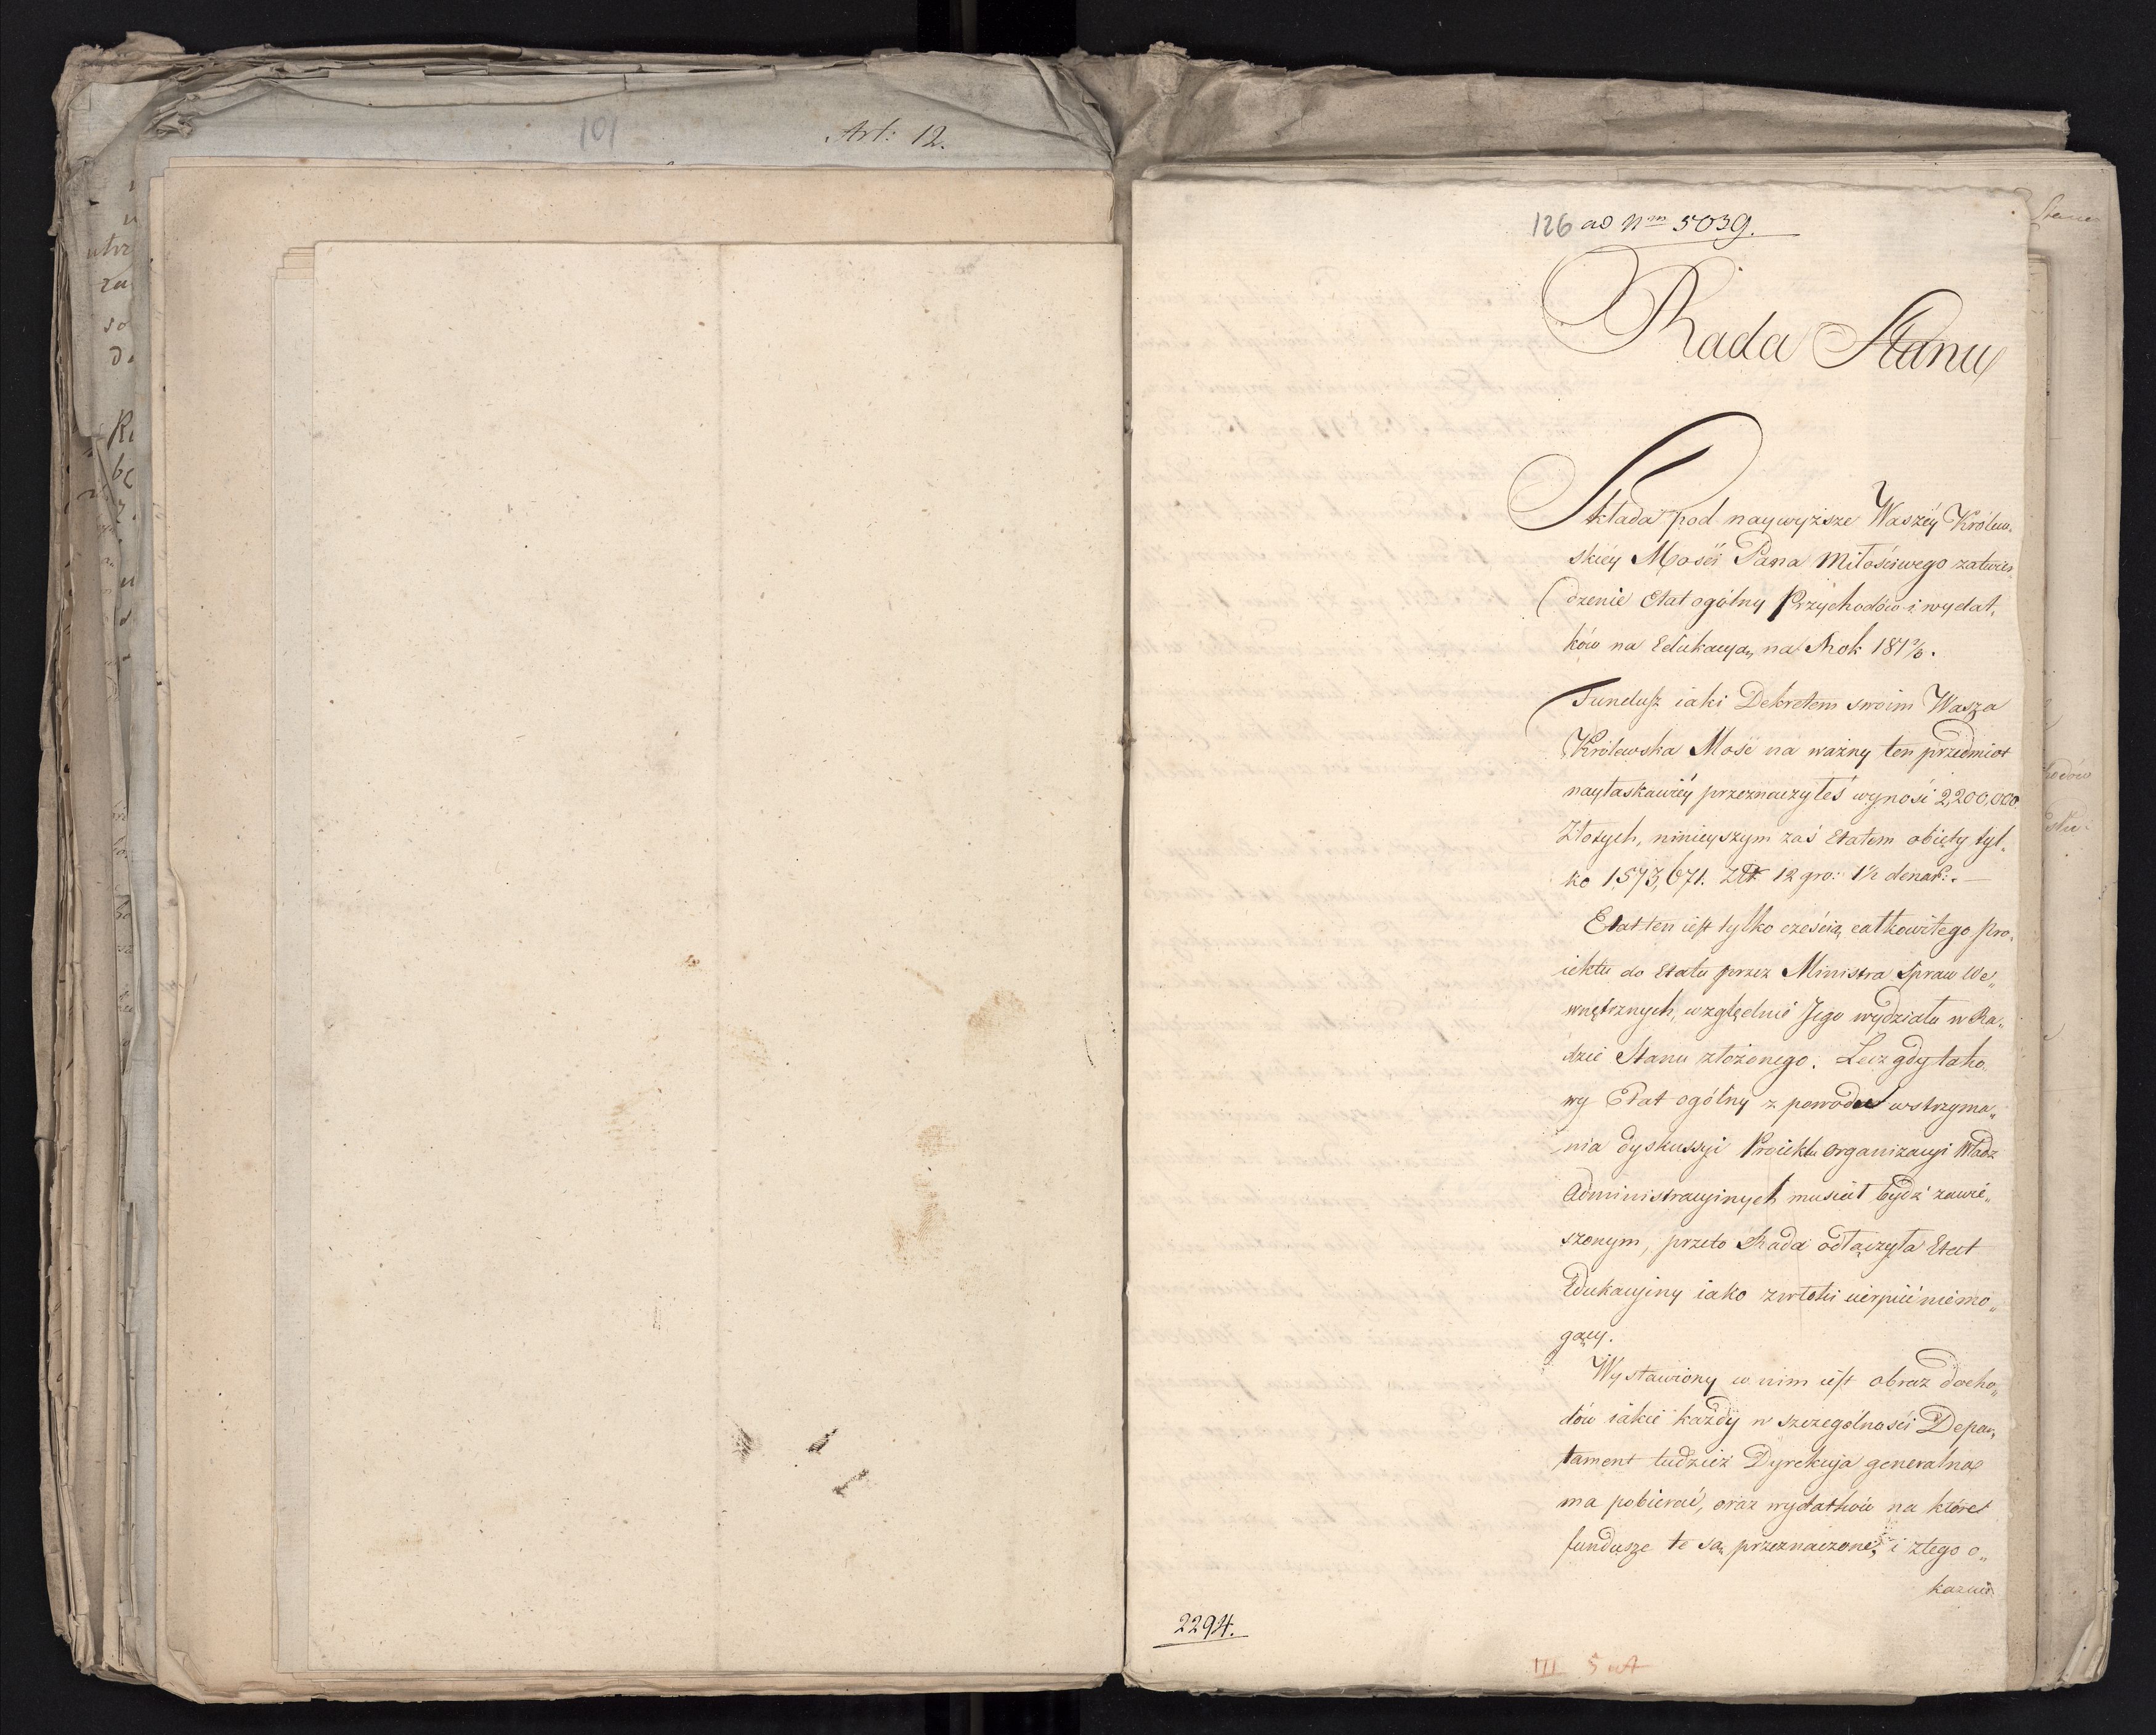 101
Art: 12.
126 ad Nrm 5039.
Rada Stanu
Składa pod naywyższe Waszéy Królew„
skiéy Mości Pana Miłościwego zatwier„
dzenie Etat ogólny Przychodów i wydat„
ków na Edukacyą, na Rok
Fundusz iaki Dekretem swoim Wasza
Królewska Mość na ważny ten przedmiot
nayłaskawiéy przeznaczyłeś wynosi 2,200,000
Złotych, ninieyszym zaś Etatem obięty tyl„
ko 1,573,671. Złt 12 gro: 1½ denar: —
Etat ten iest tylko cześcią całkowitego Pro„
iektu do Etatu przez Ministra Spraw We„
wnętrznych, względnie Jego wydziału w Ra„
dzie Stanu złożonego. Lecz gdy tako„
wy Etat ogólny z powodu wstrzyma„
nia dyskussyi Proiektu organizacyi Władz
Administracyinych musiał bydź zawie„
szonym, przeto Rada odłączyła Etat
Edukacyiny iako zwłoki cierpieć niemo„
gący.
Wystawiony w nim iest obraz docho„
dów iakie każdy w szczególności Depar„
tament tudzież Dyrekcya generalna
ma pobierać, oraz wydatków na które
fundusze te są przeznaczone, i z tego o„
kazuie
2294.
III 5